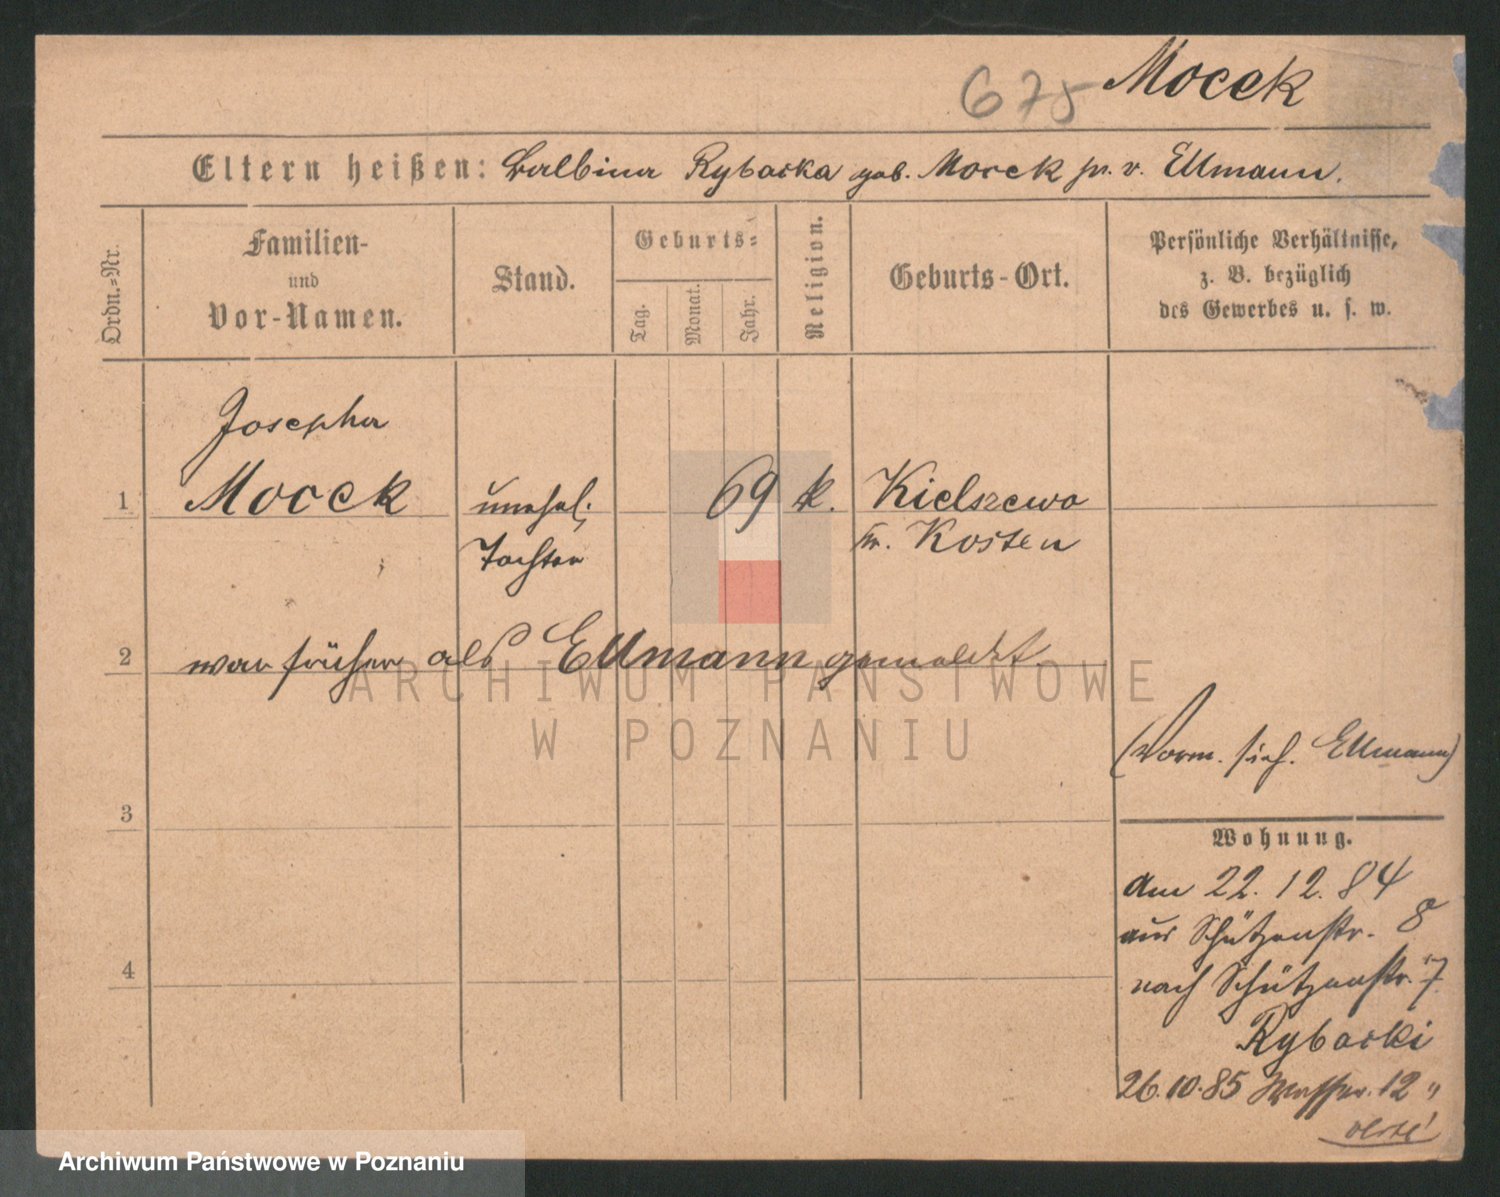 675 Mocek
Eltern heißen: Balbina Rybacka geb. Mocek pr. v. Ellmann.
Ordn.=Nr.
Familien-
und
Vor-Namen.
Stand.
Geburts=
Tag.
Monat.
Jahr.
Religion.
Geburts-Ort.
Persönliche Verhältnisse,
z. B. bezüglich
des Gewerbes u. s. w.
Josepha
1 Mocek unehel. 69 k. Kielszewo
Tochter Kr. Kosten
2 war früher als Ellmann gemeldet
ARCHIWUM PAŃSTWOWE
W POZNANIU
(Vorm. sieh. Ellmann)
3
Wohnung.
Am 22. 12. 84
aus Schützenstr. 8
4
nach Schützenstr. 7
Rybacki
26.10.85 Wasser. 12 "
Archiwum Państwowe w Poznaniu